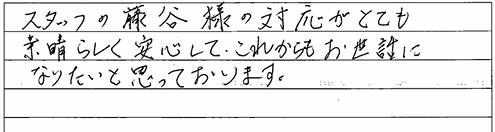 スタッフの藤谷様の対応がとても
素晴らしく安心して、これからもお世話に
なりたいと思っております。